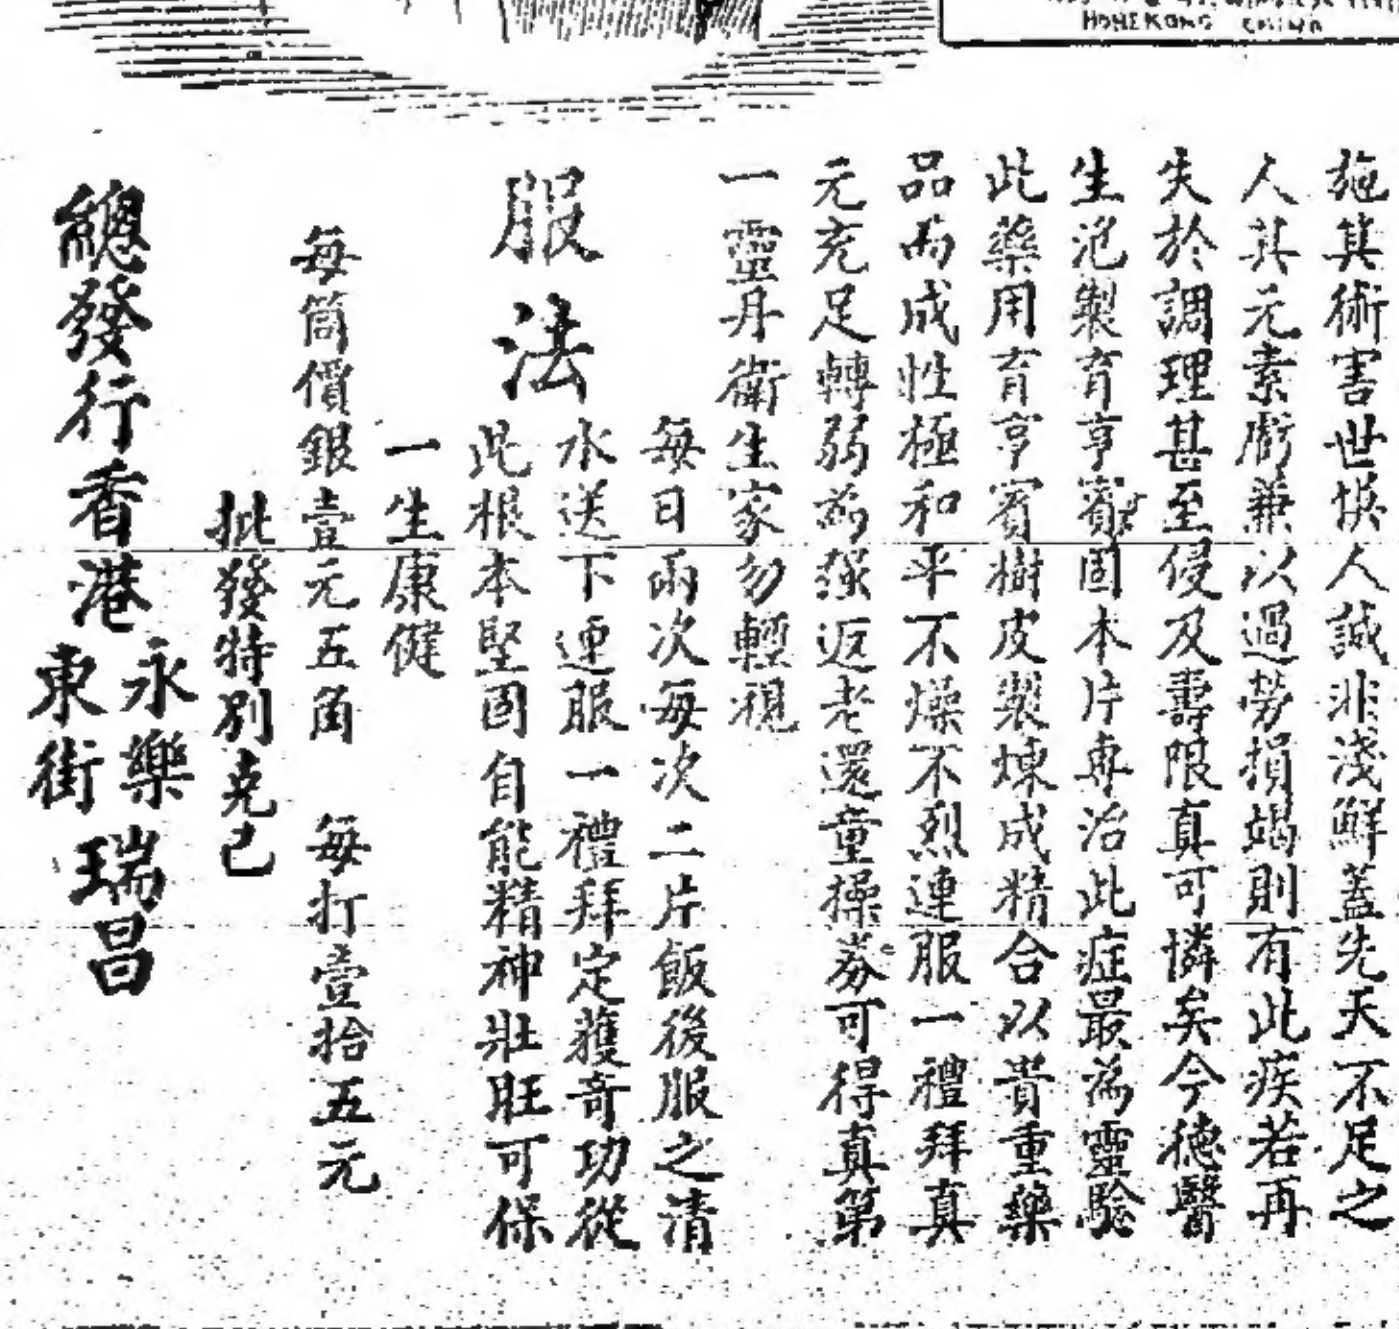 HONEKONG CHINA
施其術害世悞人誠非淺鮮蓋先天不足之
人其元素虧兼以過勞損竭則有此疾若再
失於調理甚至侵及壽限真可憐矣今德醫
生范製育亨賓固本片專治此症最為靈驗
此藥用育亨賓樹皮製煉成精合以貴重藥
品而成性極和平不燥不烈連服一禮拜真
元充足轉弱為强返老還童操券可得真第
一靈丹衛生家勿輕視
服法
每日兩次每次二片飯後服之清
水送下連服一禮拜定獲奇功從
此根本堅固自能精神壯旺可保
一生康健
每筒價銀壹元五角 每打壹拾五元
批發特別克己
總發行香港永樂東街瑞昌